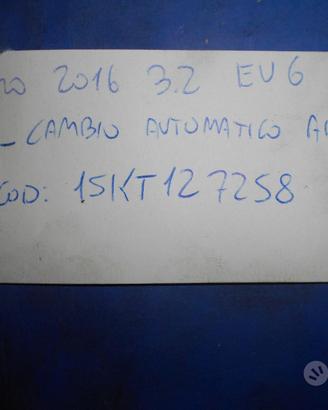 20 2016 3.2 EU6
- CAMBIO AUTOMATICO A
COD: 15KT127258